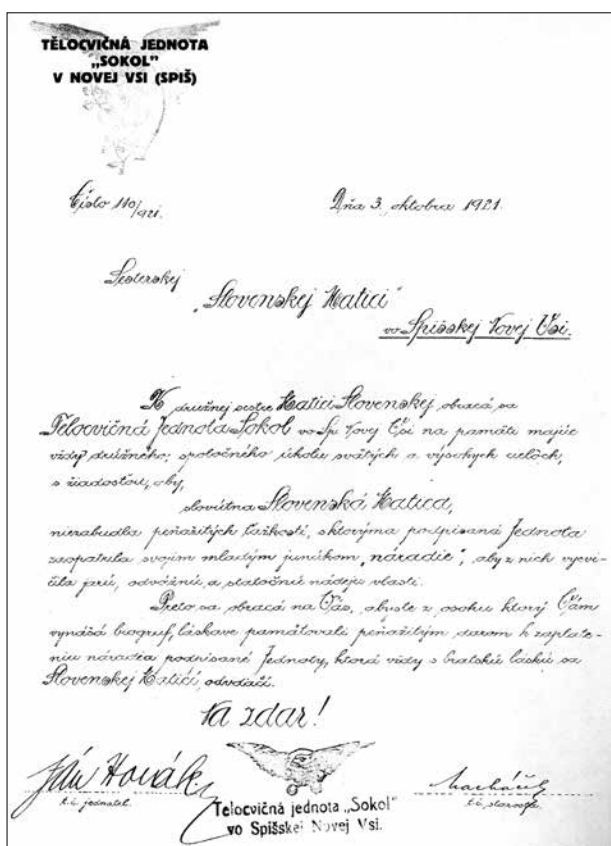 TĚLOCVIČNÁ JEDNOTA
„SOKOL”
V NOVEJ VSI (SPIŠ)
Číslo 110/921.
Dňa 3. oktobra 1921.
Sesterskej
„Slovenskej Matici”
vo Spišskej Novej Vsi.
K družnej sestre Matici Slovenskej, obracá sa
Tělocvičná Jednota Sokol vo Sp. Novej Vsi na pamäti majúc
vždy družného, spoločného úkolu svätých a vysokých cieľoch,
s žiadosťou, aby,
slovútna Slovenská Matica,
niezabudla peňažitých ťažkostí, s ktorýma podpísaná Jednota
zaopatrila svojim mladým junákom „náradie”, aby z nich vycvi-
čila jarú, odvážnú a statočnú nádeju vlasti.
Preto sa obracá na Vás, abyste z osohu ktorý Vám
vynáša biograf, láskave pamätovali peňažitým darom k zaplate-
niu náradia podpísané Jednoty, ktorá vždy s bratskú láskú sa
Slovenskej Matici, odvďačí.
Na zdar!
Ján Novák
t. č. jednatel.
t. č. starosta.
Telocvičná jednota „Sokol”
vo Spišskej Novej Vsi.